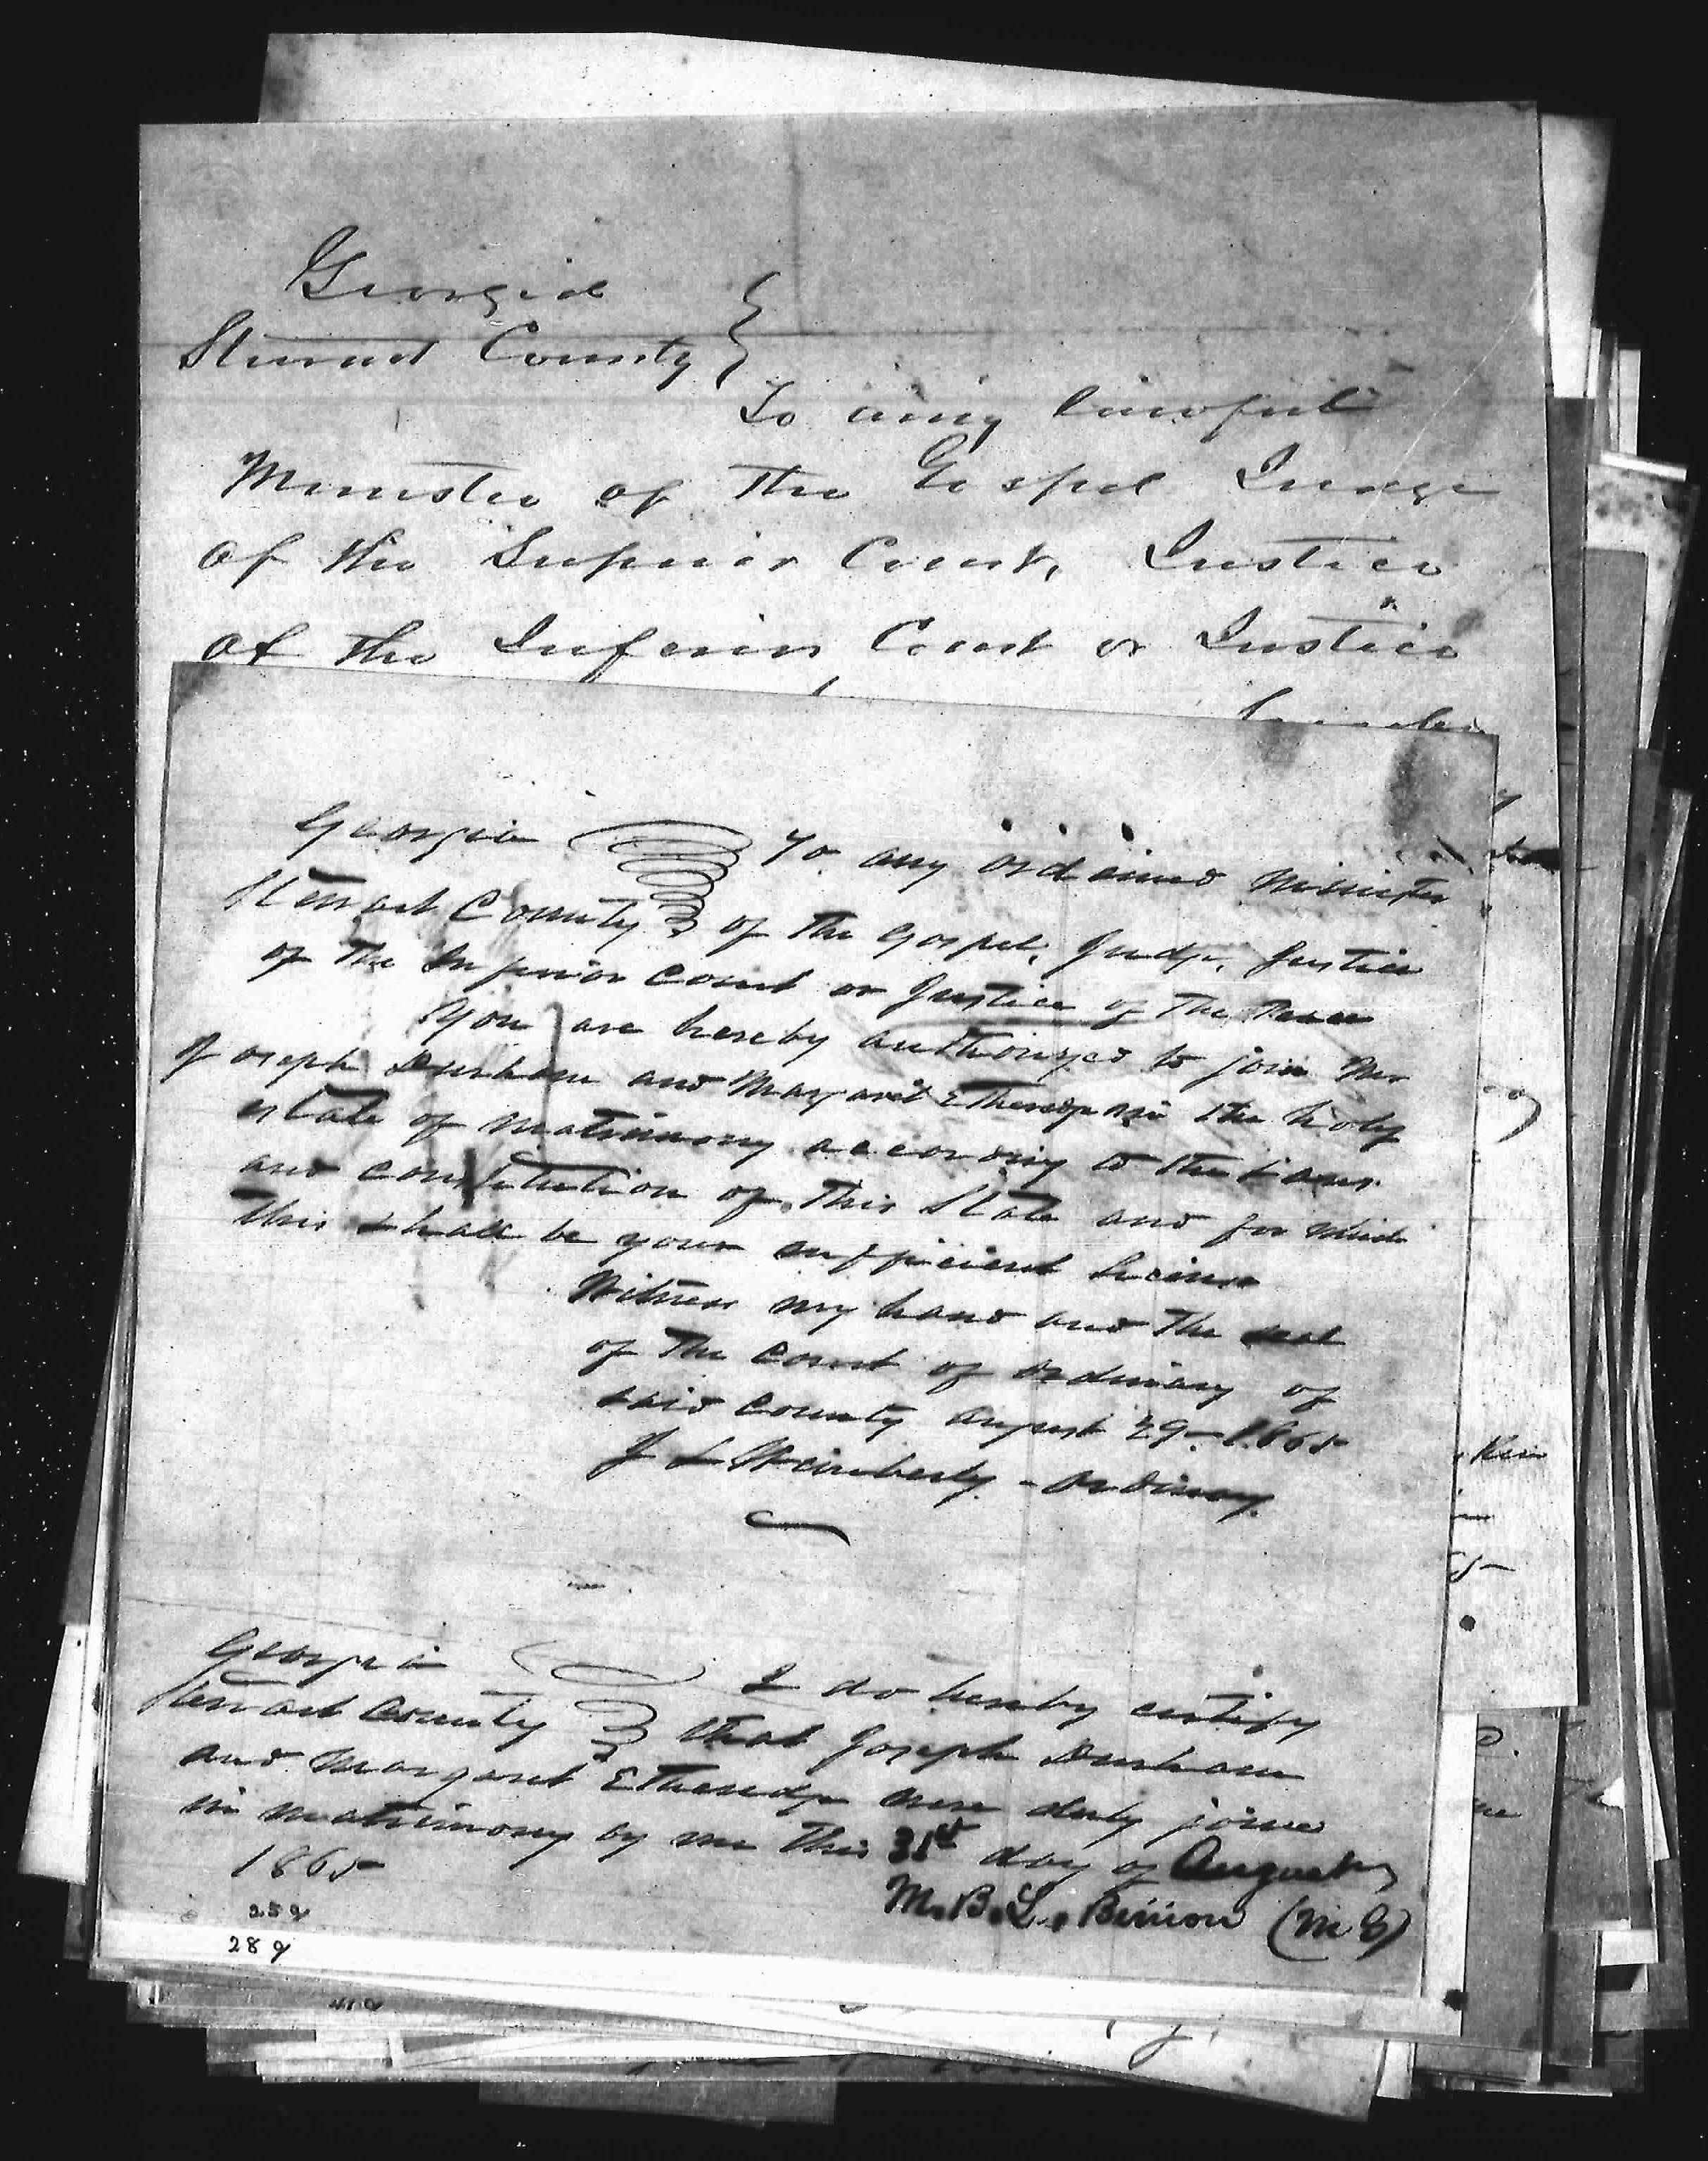 Georgia
Stewart County
To any lawful
Minister of the Gospel Judge
of the Superior Court, Justice
of the Inferior Court or Justice
Georgia To any ordained Minister
Stewart County of the Gospel, Judge, Justice
of the Inferior Court or Justice of the Peace
You are hereby authorized to join Mr
Joseph Durham and Margaret Etheredge in the holy
estate of matrimony according to the Laws
and constitution of this State and for which
this shall be your sufficient License
Witness my hand and the seal
of the Court of Ordinary of
said County August 29 - 1865
J L Wimberly - Ordinary.
Georgia I do hereby certify
Stewart County that Joseph Durham
and Margaret Etheredge were duly joined
in matrimony by me this 31st day of August
1865
M. B. L. Binion (M G)
259
289